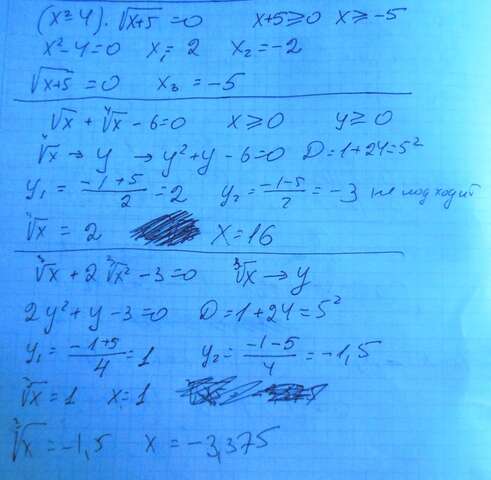 (x²-4)·√x+5 =0 x+5≥0 x≥-5
x²-4=0 x₁=2 x₂=-2
√x+5 =0 x₃=-5
√x + ⁴√x -6=0 x≥0 y≥0
⁴√x → y → y²+y-6=0 D=1+24=5²
y₁= -1+5/2 =2 y₂= -1-5/2 =-3 не подходит
⁴√x = 2 x=16
³√x +2 ³√x² -3=0 ³√x → y
2y²+y-3=0 D=1+24=5²
y₁= -1+5/4 =1 y₂= -1-5/4 =-1,5
³√x =1 x=1
³√x =-1,5 x=-3,375